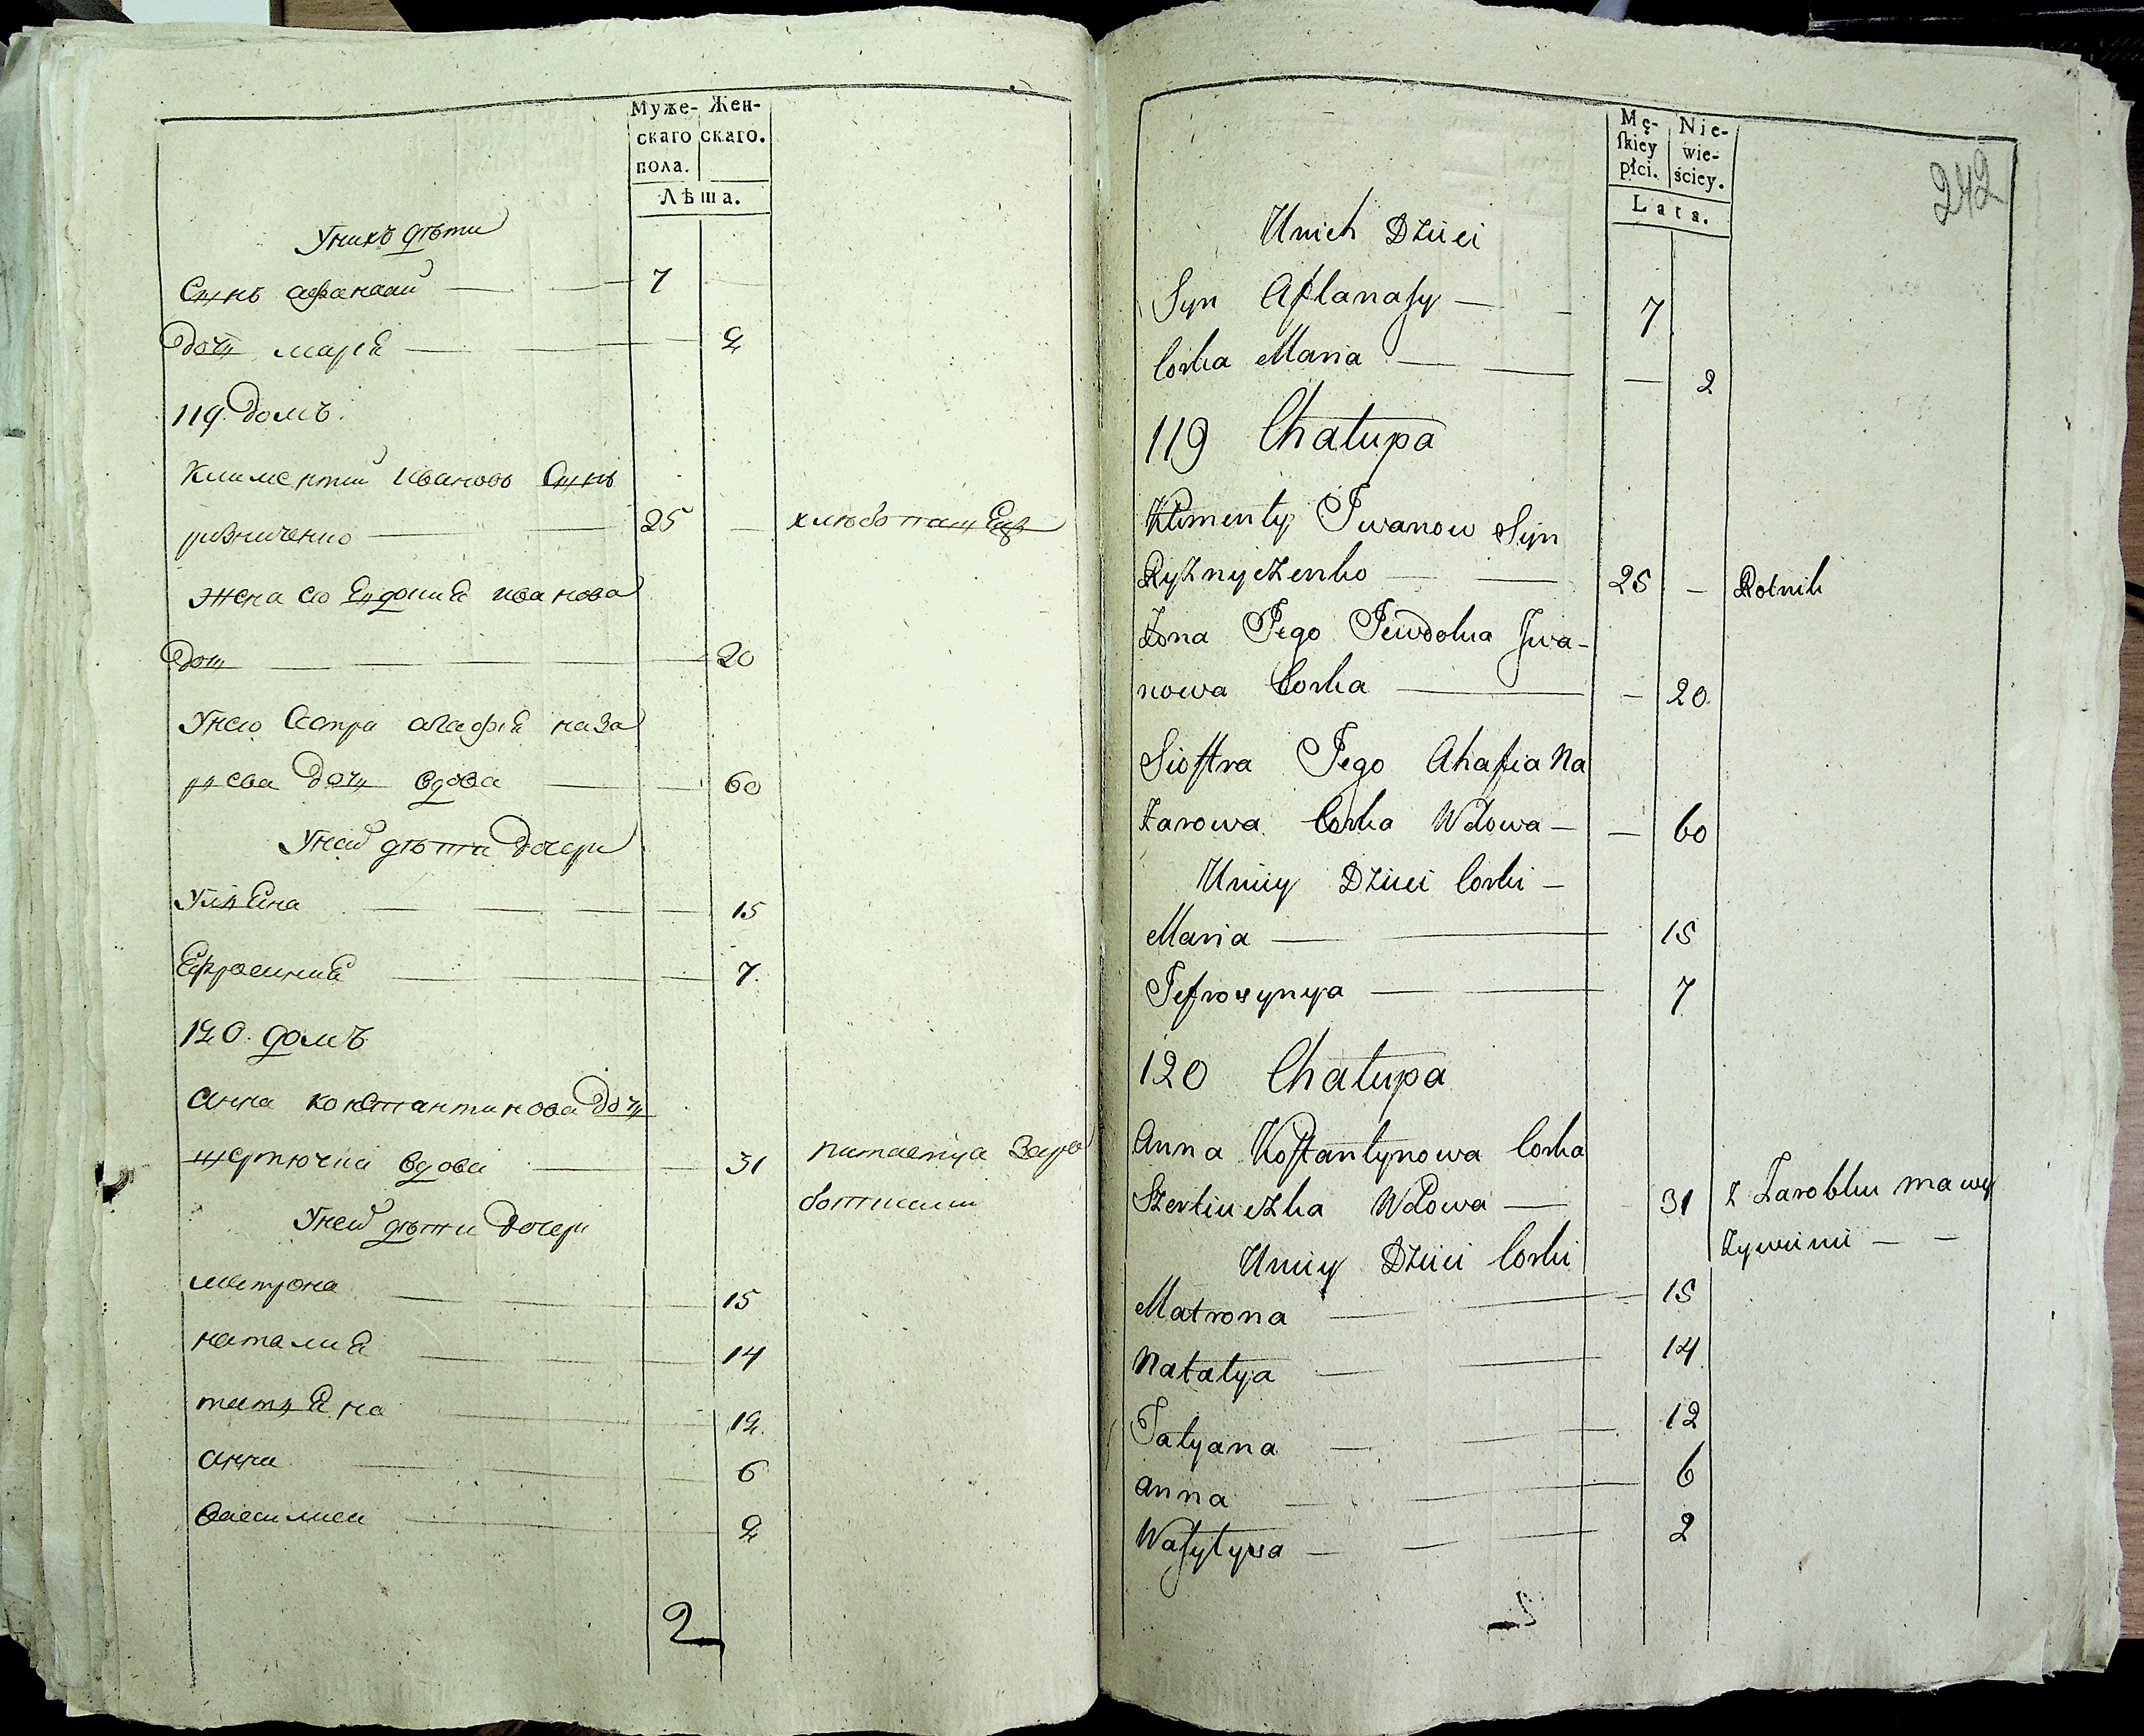 Муже-
скаго
пола.
Жен-
скаго.
Лѣта.
Унихъ дѣти
Сынъ афанасий 7
Дочь мария 2
119. Домъ.
Климентий Ивановъ Сынъ
ризниченко 25 — хлѣбопашец
Жена его Евдокия иванова
Дочь 20
Унего Сестра агафия наза
рова Дочь вдова 60
Уней дѣти Дочери
Улияна 15
Ефросиния 7.
120. домъ
Анна константинова Дочь
шертючка вдова 31 питается Зара
ботками
Уней дѣти Дочери
матрона 15
наталия 14
татияна 12.
анна 6
василиса 2
2
242
Mę-
ſkiey
płci.
Nie-
wie-
ściey.
Lata.
Unich Dzieci
Syn Affanaſy — 7
Corka Maria — — 2
119 Chałupa
Klimenty Iwanow Syn
Ryznyczenko — 25 — Rolnik
Żona Jego Jewdokia Iwa-
nowa Corka — — 20.
Sioſtra Jego Ahafia Na
zarowa Corka Wdowa — — 60
Uniey Dzieci Corki —
Maria — 15
Jefrosynya — 7
120 Chałupa
Anna Koſtantynowa Corka
Szertiuczka Wdowa — 31 z Zarobku ma wy
żywieni — —
Uniey Dzieci Corki
Matrona — 15
Natalya — 14
Tatyana — 12
anna — 6
Waſylysa — 2